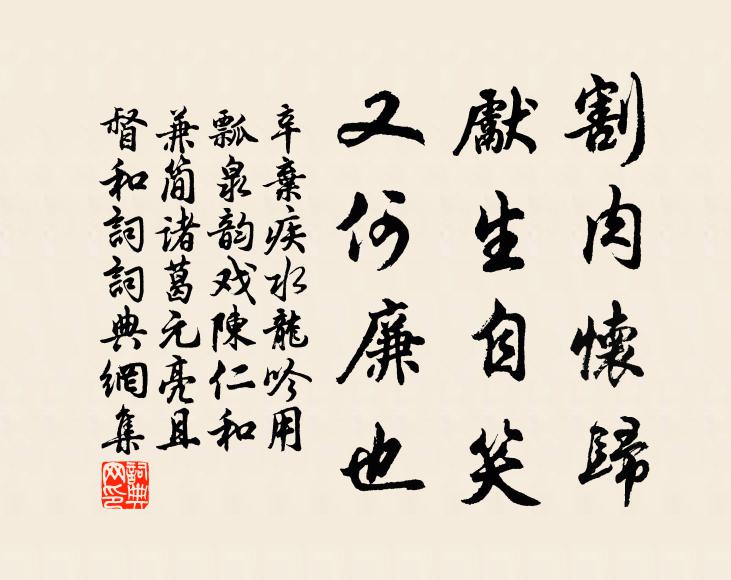 割肉懷歸
獻生自笑
又何廉也
辛棄疾水龍吟用
瓢泉韵戏陳仁和
兼简诸葛元亮且
督和詞詞典網集
詞典网印